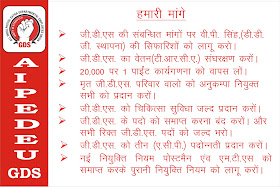 GDS
AIPEDEU
GDS
हमारी मांगे
जी.डी.एस की संबन्धित मांगों पर वी.पी. सिंह,(डी.डी.
जी. स्थापना) की सिफारिशों को लागू करो।
जी.डी.एस का वेतन(टी.आर.सी.ए.) संघरक्षण करों।
20,000 पर 1 पाईंट कार्यगणना को वापस लों।
मृत जी.डी.एस. परिवार वालो को अनुकम्पा नियुक्त
सभी को प्रदान करों।
जी.डी.एस. को चिकित्सा सुविधा जल्द प्रदान करों।
जी.डी.एस. के पदो को समाप्त करना बंद करों। और
सभी रिक्त जी.डी.एस. पदों को जल्द भरो।
जी.डी.एस. को तीन (ए.सी.पी.) पदोन्नती प्रदान करों।
नई नियुक्ति नियम पोस्टमैन एंव एम.टी.एस को
समाप्त करके पुरानी नियुक्ति नियम को लागू करों।